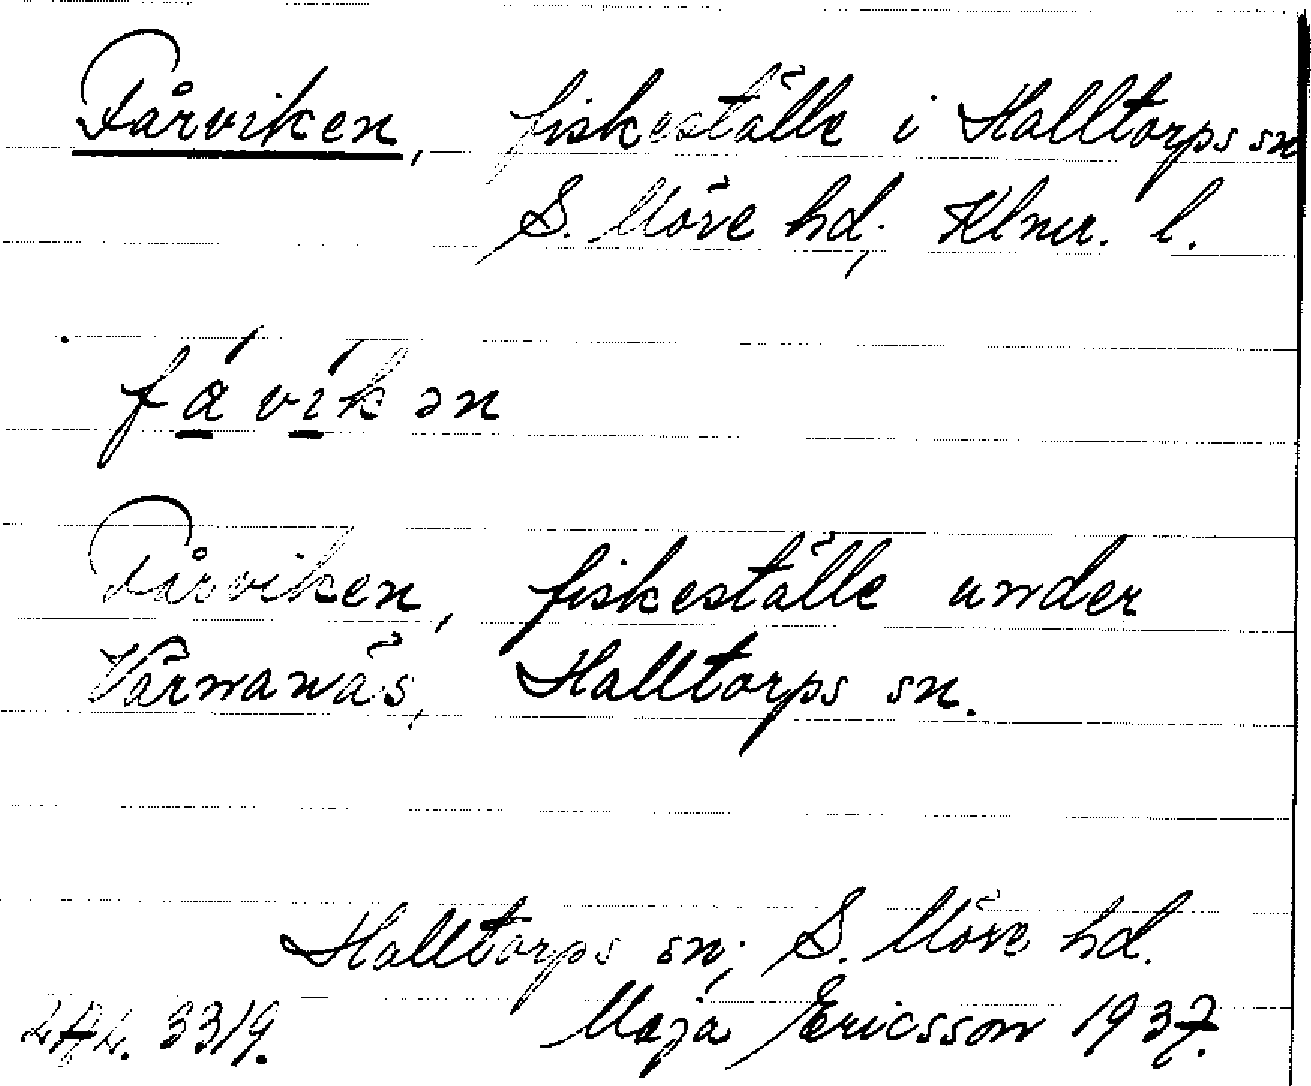 Fårviken, fiskeställe i Halltorps sn
S. Möre hd., Klmr. l.
fávíkən
Fårviken, fiskeställe under
Värnanäs, Halltorps sn.
Halltorps sn., S. Möre hd.
LAL. 3319. Maja Ericsson 1937.